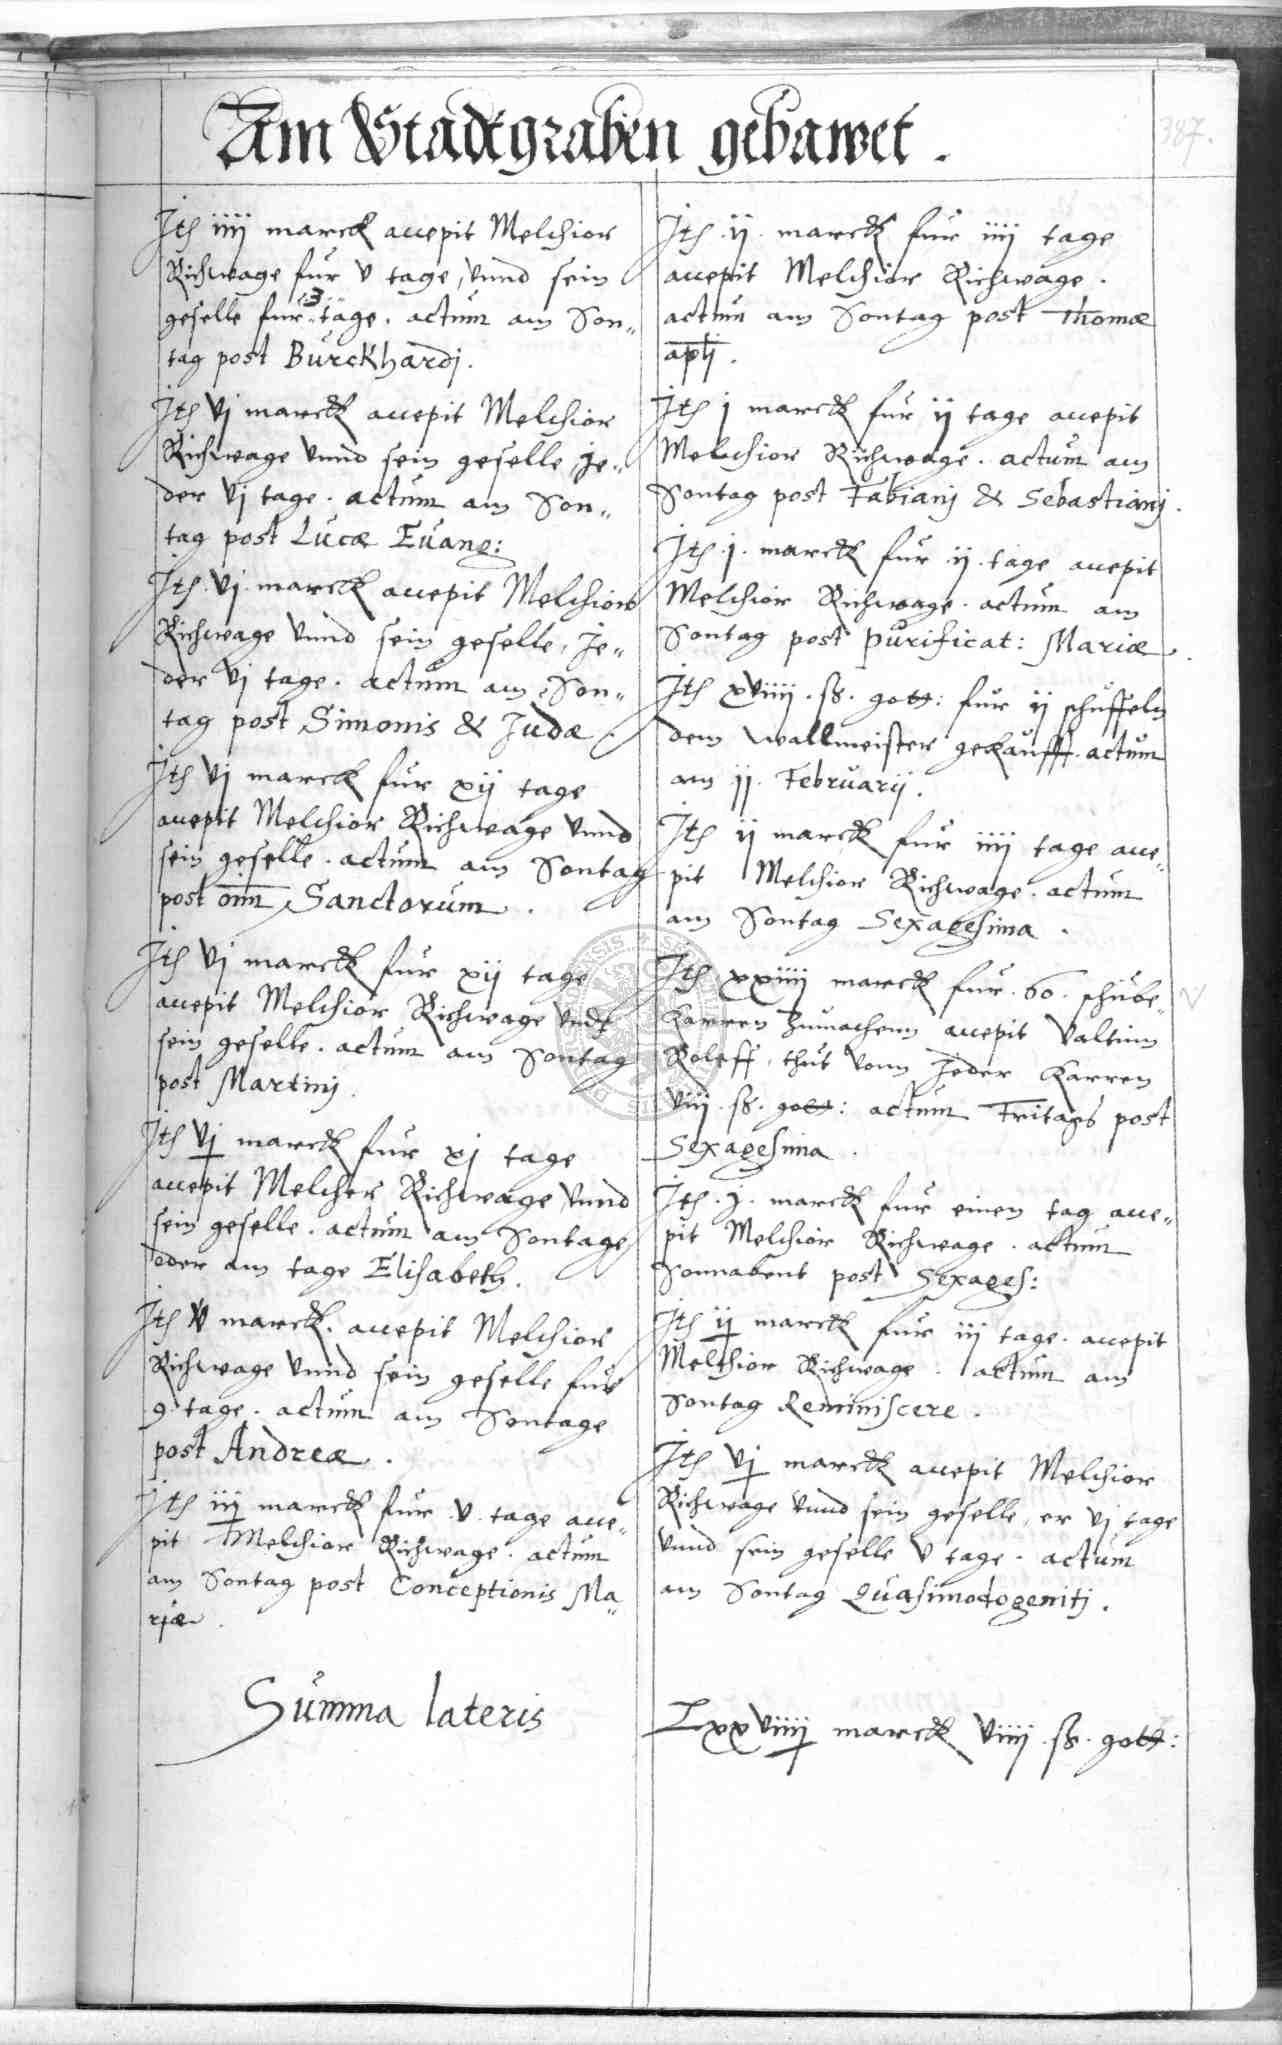 387.
Am Stadtgraben gebawet.
Itē iiij marck accepit Melchior
Richwage fur v tage, vnnd sein
geselle fur 3 tage. actum am Son„
tag post Burckhardj.
Itē vj marck accepit Melchior
Richwage vnnd sein geselle, Je„
der vj tage. actum am Son„
tag post Lucæ Euang:
Itē vj marck accepit Melchior
Richwage vnnd sein geselle, Je„
der vj tage. actum am Son„
tag post Simonis & Judæ.
Itē vj marck fur xij tage
accepit Melchior Richwage vnnd
sein geselle. actum am Sontag
post om̄ Sanctorum.
Itē vj marck fur xij tage
accepit Melchior Richwage vndt
sein geselle. actum am Sontag
post Martinj.
Itē vj marck fur xj tage
accepit Melcher Richwage, vnnd
sein geselle. actum am Sontage
oder am tage Elisabeth.
Itē v marck. accepit Melchior
Richwage vnnd sein geselle fur
9 tage. actum am Sontage
post Andreæ.
Itē iij marck fur v tage acce„
pit Melchior Richwage. actum
am Sontag post Conceptionis Ma„
riæ.
Itē .ij. marck fur iiij tage
accepit Melchior Richwage.
actum am Sontag post Thomæ
apli.
Itē j marck fur ij tage accepit
Melchior Richwage. actum am
Sontag post Fabianj & Sebastianj.
Itē .j. marck fur .ij. tage accepit
Melchior Richwage. actum am
Sontag post purificat: Mariæ.
Itē xviiij. ß. gott: fur ij schuffeln
dem wallmeister gekaufft. actum
am jj. Februarij.
Itē ij marck fur iiij tage acce„
pit Melchior Richwage. actum
am Sontag Sexagesima.
Itē xxiiij marck fur .60. schube„
karren zumachenn accepit Valtinn
Roleff, thut vonn Jeder karren
viij. ß. gott: actum Fritags post
Sexagesima.
Itē .j. marck fur einen tag acce„
pit Melchior Richwage. actum
Sonnabent post Sexages:
Itē ij marck fur iij tage. accepit
Melchior Richwage. actum am
Sontag Reminiscere.
Itē vj marck accepit Melchior
Richwage vnnd sein geselle, er vj tage
vnnd sein geselle v tage. actum
am Sontag Quasimodogenitj.
Summa lateris Lxxviiij marck viiij. ß. gott: